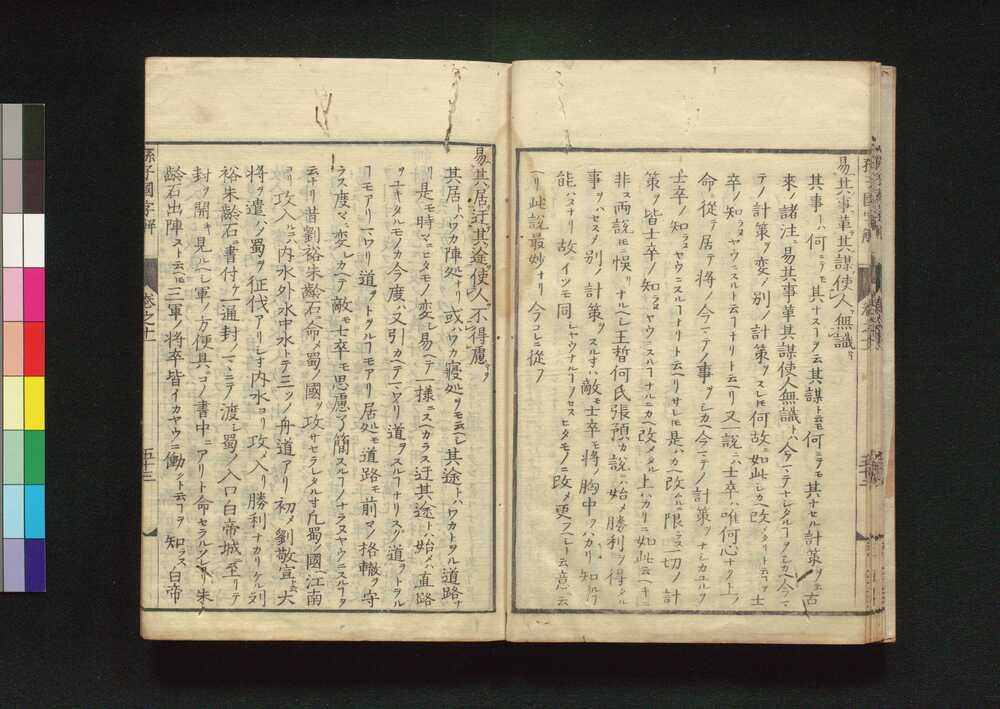 易其事革其謀使人無識
其事トハ何ニテモ其ナスヿヲ云其謀ト云モ何ニテモ其ナセル計策ヲ云古
来ノ諸注ニ易其事革其謀使人無識トハ今マテナシタルヿヲシカヘ今マ
テノ計策ヲ変ノ別ノ計策ヲスレモ何故ニ如此シカヘ改メタリト云ヿヲ士
卒ノ知ラヌヤウニスルト云ヿナリト云ヘリ又一説ニハ士卒ハ唯何心ナク上ノ
命ニ従テ居テ将ノ今マテノ事ヲシカヘ今マテノ計策ヲナシカユルヲ
士卒ノ知ラヌヤウニスルヿナリト云ヘリサレモ是ハカヘ改ムルニ限ラス一切ノ計
策ヲ皆士卒ノ知ラヌヤウニスルヿナルニカヘ改メタル上ハカリニ如此云ヘキニ
非ス両説モ悞リナルヘシ王晳何氏張預カ説ニハ始メ勝利ヲ得タル
事ヲハセスメ別ノ計策ヲスルオハ敵モ士卒モ将ノ胸中ヲハカリ知ルヿ
能ハスナリ故ニイツモ同シヤウナルヿヲノセスヒタモノニ改メ更フヘシト云意ニ云
ヘリ此説最妙ナリ今コレニ従フ
易其居迂其途使人不得慮
其居トハワカ陣処ナリ或ハワカ寝処ヲモ云ヘシ其途トハワカトヲル道路ナ
リ是モ時マニヒタモノ変シ易ヘテ一様ニスヘカラス迂其途トハ始メハ直路
ヲユキタルモノカ今度ハ又引カヘテマワリ道ヲスルヿナリスグ道ヲトヲル
ヿモアリマワリ道ヲトヲルヿモアリ居処モ道路モ前マノ格轍ヲ守
ラス度マ変シカヘテ敵モ士卒モ思慮了簡スルヿノナラヌヤウニスルヿヲ
云ナリ昔劉裕朱齢石ニ命メ蜀ノ國ヲ攻サセラレタルオ凡蜀ノ國ヘ江南
ヨリ攻入ルニハ内水外水中水トテ三ツノ舟道アリ初メ劉敬宣ト云大
将ヲ遣ハシ蜀ヲ征伐アリシオ内水ヨリ攻メ入リ勝利ナカリケル劉
裕朱齢石ニ書付ケ一通封ノマヽニテ渡シ蜀ノ入口白帝城ニ至リテ
封ヲ開キ見ルヘシ軍ノ方便具ニコノ書中ニアリト命セラルソレヨリ朱
齢石出陣スト云ヘモ三軍ノ将卒皆イカヤウニ働クト云ヿヲ知ラス白帝
孫子國字解
巻之十一
五十三